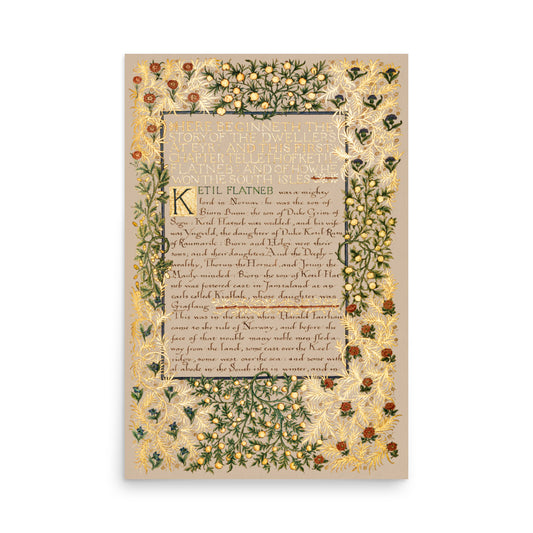 HERE BEGINNETH THE
STORY OF THE DWELLERS
AT EYR, AND THIS FIRST
CHAPTER TELLETH OF KETIL
FLATNEB, AND OF HOW HE
WON THE SOUTH ISLES
KETIL FLATNEB was a mighty
lord in Norway: he was the son of
Biorn Buna, the son of Duke Grim of
Sogn: Ketil Flatneb was wedded, and his wife
was Yngvild, the daughter of Duke Ketil
of Raumarik: Biorn and Helgi were their
sons, and their daughters Aud the Deeply-
wealthy, Thorun the Horned, and Jorun the
Manly-minded: Biorn the son of Ketil Flat
neb was fostered east in Jamtaland at an
earls called Kiallak, whose daughter was
Giaflaug.
This was in the days when Harald Fairhair
came to the rule of Norway, and before the
face of that trouble many noble men fled a
way from the land, some east over the Keel
ridge, some west over the sea: and some with
al abode in the South isles in winter, and in